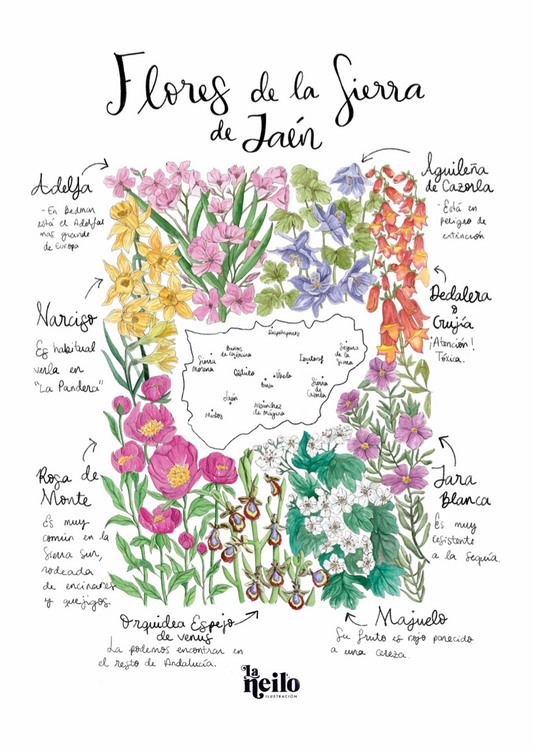 Flores de la Sierra
de Jaén
Adelfa
- En Bedmar
está el Adelfal
mas grande
de Europa
Aguileña
de Cazorla
- Está en
peligro de
extinción
Narciso
Es habitual
verla en
"La Pandera"
Dedalera
o
Crujía
¡Atención!
Tóxica.
Despeñaperros
Baños
de la Encina
Sierra
Morena
Cástulo
Úbeda
Baeza
Iznatoraf
Segura
de la
Sierra
Sierra
de
Cazorla
Jaén
Martos
Albanchez
de Mágina
Rosa de
Monte
Es muy
común en la
Sierra Sur,
rodeada
de encinares
y quejigos.
Jara
Blanca
Es muy
resistente
a la sequía.
Orquidea Espejo
de venus
La podemos encontrar en
el resto de Andalucía.
Majuelo
Su fruto es rojo parecido
a una cereza.
La
neilo
ILUSTRACIÓN